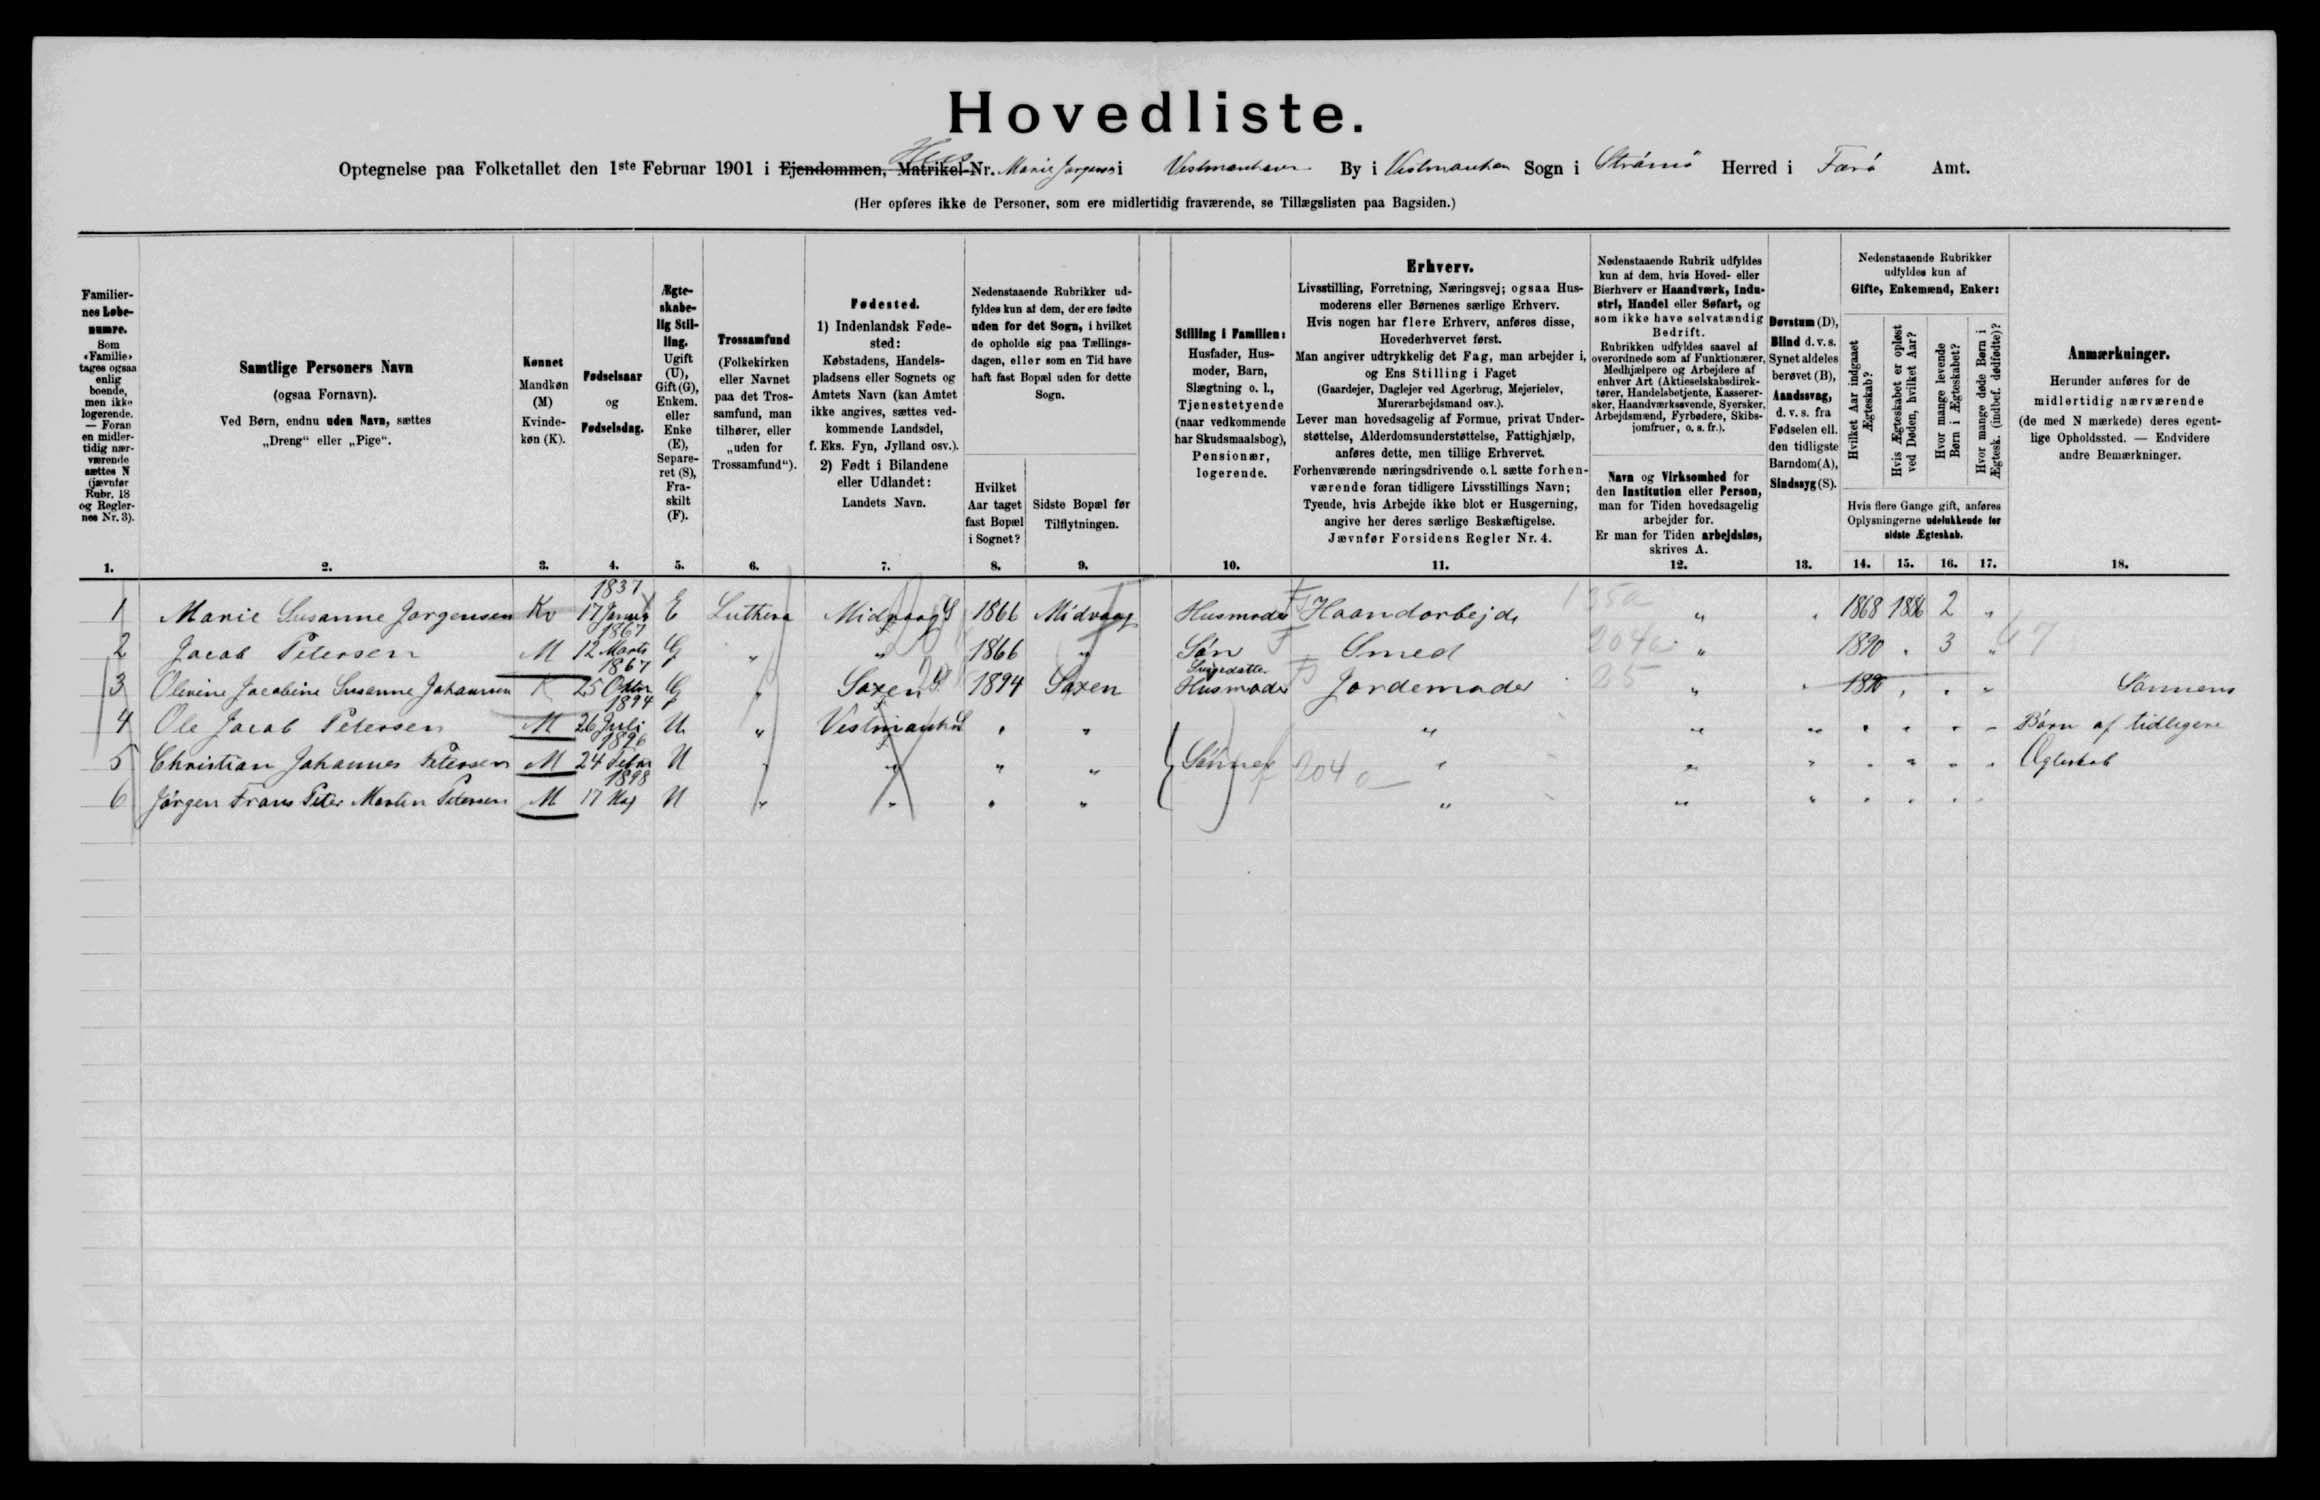 Hovedliste.
Optegnelse paa Folketallet den 1ste Februar 1901 i Ejendommen, Matrikel-Nr. Marie Jørgensen i Vestmanhavn By i Vestmanhavn Sogn i Strømø Herred i Færø Amt.
Huus
(Her opføres ikke de Personer, som ere midlertidig fraværende, se Tillægslisten paa Bagsiden.)
Familiernes Løbenumre.
Som «Familie» tages ogsaa enlig boende, men ikke logerende. — Foran en midlertidig nærværende sættes N (jævnfør Rubr. 18 og Reglernes Nr. 3).
Samtlige Personers Navn
(ogsaa Fornavn).
Ved Børn, endnu uden Navn, sættes
„Dreng“ eller „Pige“.
Kønnet
Mandkøn (M)
Kvindekøn (K).
Fødselsaar
og
Fødselsdag.
Ægteskabelig Stilling.
Ugift (U), Gift (G), Enkem. eller Enke (E), Separeret (S), Fraskilt (F).
Trossamfund
(Folkekirken eller Navnet paa det Trossamfund, man tilhører, eller „uden for Trossamfund“).
Fødested.
1) Indenlandsk Fødested:
Købstadens, Handelspladsens eller Sognets og Amtets Navn (kan Amtet ikke angives, sættes vedkommende Landsdel, f. Eks. Fyn, Jylland osv.).
2) Født i Bilandene eller Udlandet:
Landets Navn.
Nedenstaaende Rubrikker udfyldes kun af dem, der ere fødte uden for det Sogn, i hvilket de opholde sig paa Tællingsdagen, eller som en Tid have haft fast Bopæl uden for dette Sogn.
Hvilket Aar taget fast Bopæl i Sognet?
Sidste Bopæl før Tilflytningen.
Stilling i Familien:
Husfader, Husmoder, Barn, Slægtning o. l., Tjenestetyende (naar vedkommende har Skudsmaalsbog), Pensionær, logerende.
Erhverv.
Livsstilling, Forretning, Næringsvej; ogsaa Husmoderens eller Børnenes særlige Erhverv.
Hvis nogen har flere Erhverv, anføres disse, Hovederhvervet først.
Man angiver udtrykkelig det Fag, man arbejder i, og Ens Stilling i Faget
(Gaardejer, Daglejer ved Agerbrug, Mejerielev, Murerarbejdsmand osv.).
Lever man hovedsagelig af Formue, privat Understøttelse, Alderdomsunderstøttelse, Fattighjælp, anføres dette, men tillige Erhvervet.
Forhenværende næringsdrivende o. l. sætte forhenværende foran tidligere Livsstillings Navn;
Tyende, hvis Arbejde ikke blot er Husgerning, angive her deres særlige Beskæftigelse.
Jævnfør Forsidens Regler Nr. 4.
Nedenstaaende Rubrik udfyldes kun af dem, hvis Hoved- eller Bierhverv er Haandværk, Industri, Handel eller Søfart, og som ikke have selvstændig Bedrift.
Rubrikken udfyldes saavel af overordnede som af Funktionærer, Medhjælpere og Arbejdere af enhver Art (Aktieselskabsdirektører, Handelsbetjente, Kasserersker, Haandværksvende, Syersker, Arbejdsmænd, Fyrbødere, Skibsjomfruer, o. s. fr.).
Navn og Virksomhed for den Institution eller Person, man for Tiden hovedsagelig arbejder for.
Er man for Tiden arbejdsløs, skrives A.
Døvstum (D),
Blind d. v. s. Synet aldeles berøvet (B),
Aandssvag, d. v. s. fra Fødselen ell. den tidligste Barndom (A),
Sindssyg (S).
Nedenstaaende Rubrikker udfyldes kun af
Gifte, Enkemænd, Enker:
Hvilket Aar indgaaet Ægteskab?
Hvis Ægteskabet er opløst ved Døden, hvilket Aar?
Hvor mange levende Børn i Ægteskabet?
Hvor mange døde Børn i Ægtesk. (indbef. dødfødte)?
Hvis flere Gange gift, anføres Oplysningerne udelukkende for sidste Ægteskab.
Anmærkninger.
Herunder anføres for de midlertidig nærværende (de med N mærkede) deres egentlige Opholdssted. — Endvidere andre Bemærkninger.
1. 2. 3. 4. 5. 6. 7. 8. 9. 10. 11. 12. 13. 14. 15. 16. 17. 18.
1 Marie Susanne Jørgensen Kv 1837 17 Januar E Luthera Midvaag 1866 Midvaag Husmoder Haandarbejde " 1868 1886 2 "
2 Jacob Petersen M 1867 12 Marts G " " 1866 " Søn Smed 204 " 1890 " 3 " 67
3 Olevine Jacobine Susanne Johannesen K 1867 25 Oktbr G " Saxen 1894 Saxen Svigedatter Husmoder Jordemoder 25 " 1890 " " " Sønnens
4 Ole Jacob Petersen M 1894 26 Juli U " Vestmanhavn " " " " " " " " " Børn af tidligere
5 Christian Johannes Petersen M 1896 24 Febr U " " " " Sønner 204 " " " " " " " Ægteskab
6 Jørgen Frans Peter Martin Petersen M 1898 17 Maj U " " " " " " " " " " "